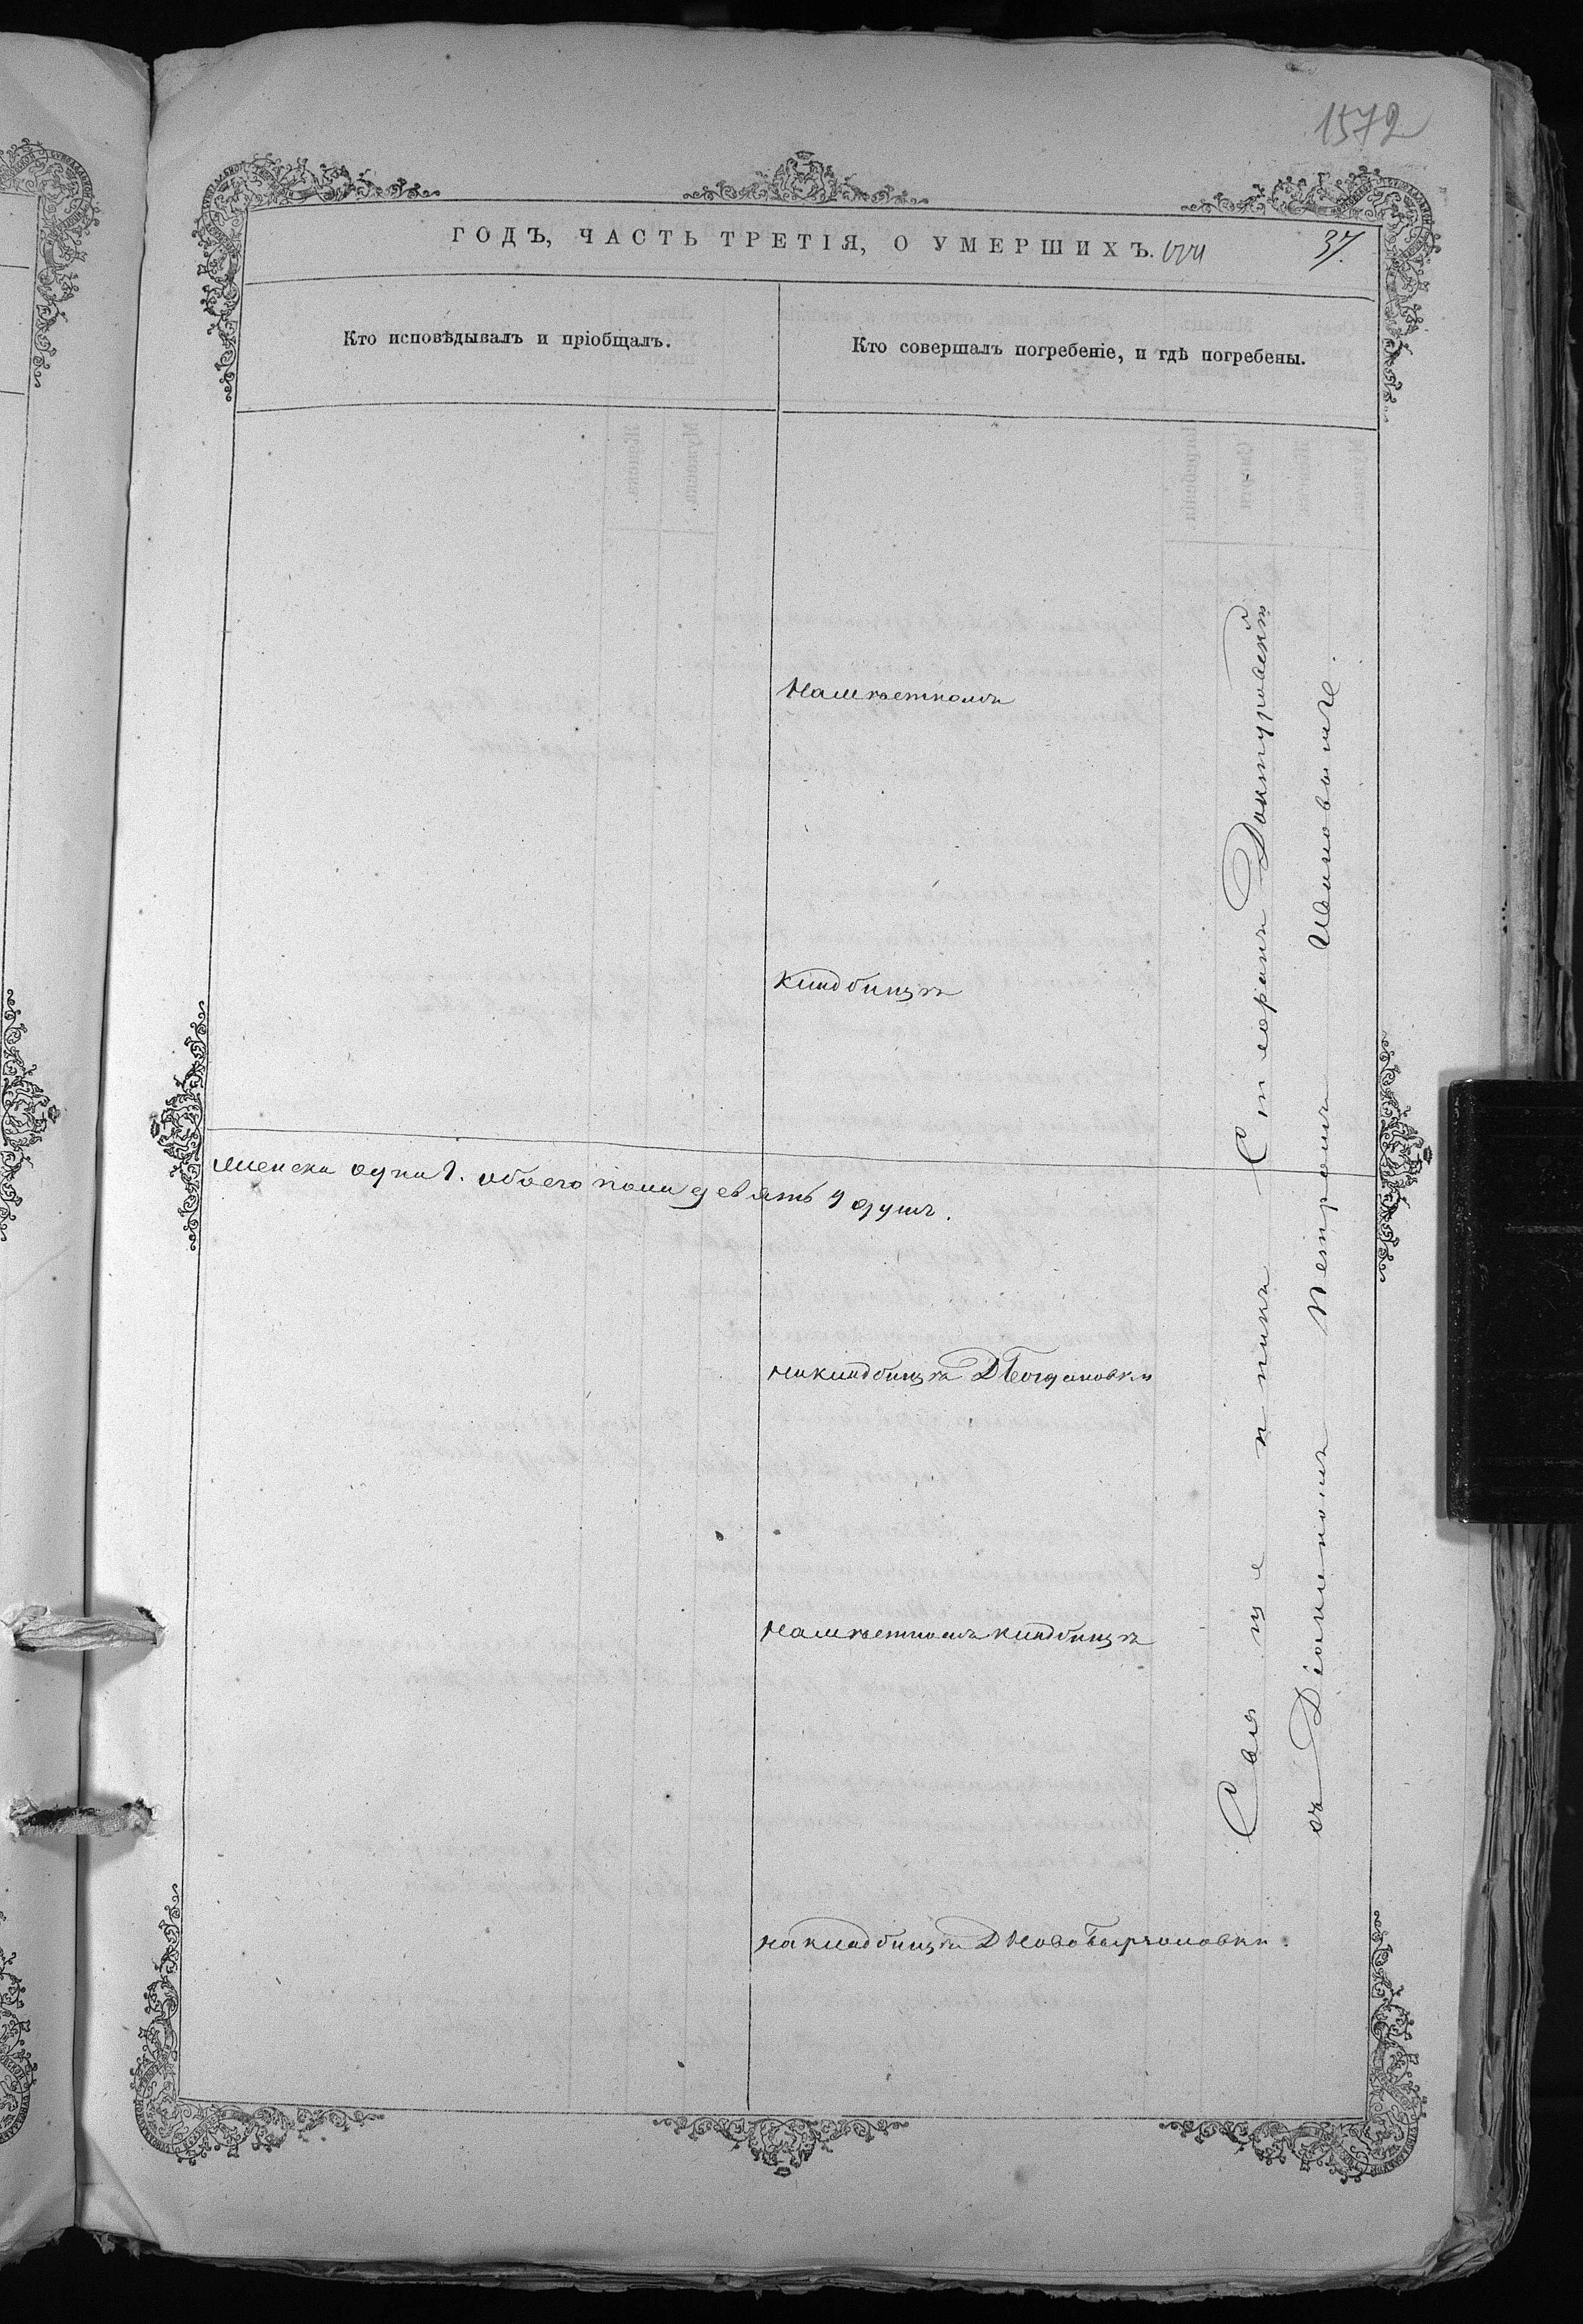 1572
ГОДЪ, ЧАСТЬ ТРЕТІЯ, О УМЕРШИХЪ.
37.
Кто исповѣдывалъ и пріобщалъ.
Кто совершалъ погребеніе, и гдѣ погребены.
На мѣстномъ
кладбищѣ
женска одна 1. обоего пола девять 9 душъ.
на кладбищѣ Д Богдановки
На мѣстномъ кладбищѣ
на кладбищѣ Д Ново
Священникъ Стефанъ
съ Діакономъ Петромъ Ивановымъ.